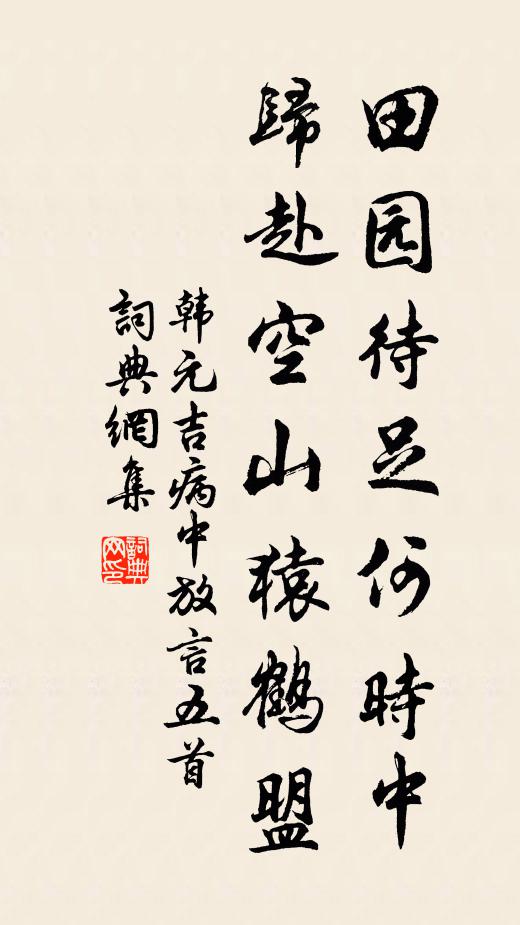 田园待足何時中
歸赴空山猿鶴盟
韩元吉病中放言五首
詞典網集
詞典网印